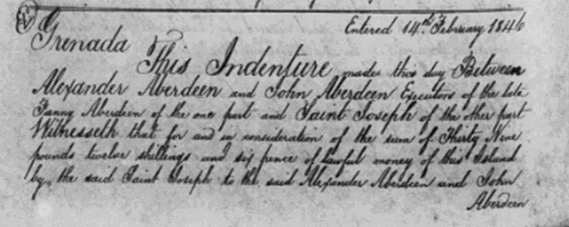 Entered 14th February 1846
Grenada This Indenture made this day Between
Alexander Aberdeen and John Aberdeen Executors of the late
Fanny Aberdeen of the one part and Saint Joseph of the other part
Witnesseth that for and in consideration of the sum of Thirty Nine
pounds twelve shillings and six pence of lawful money of this Island
by the said Saint Joseph to the said Alexander Aberdeen and John
Aberdeen